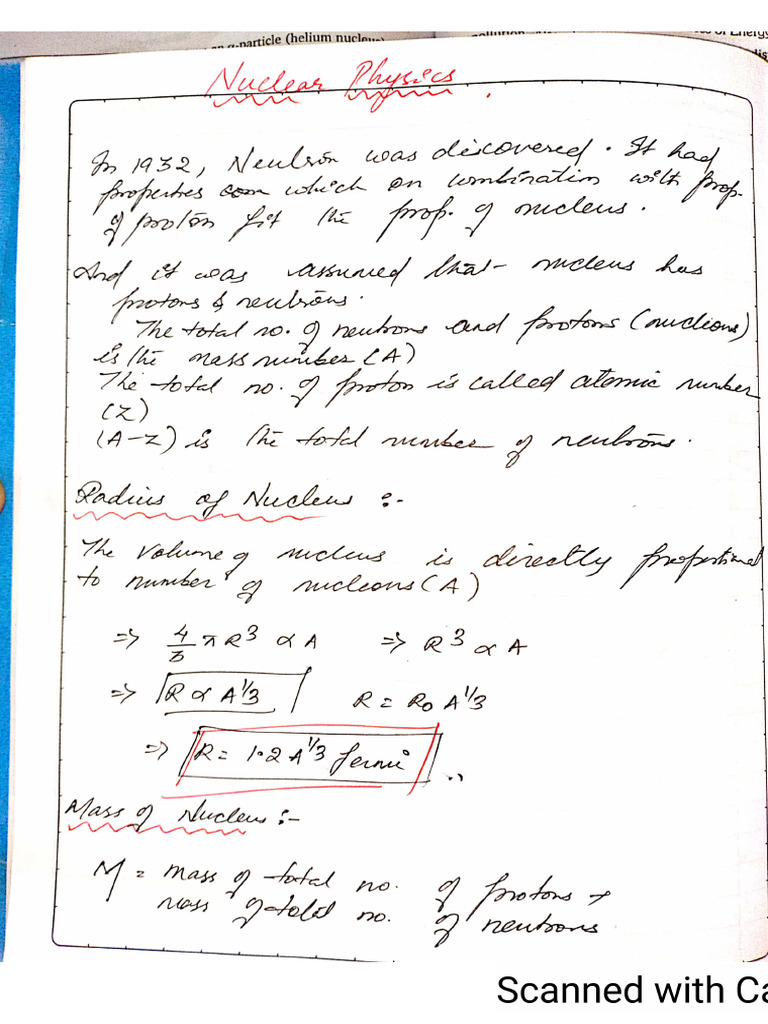 an α-particle (helium nucleus)
Nuclear Physics.
In 1932, Neutron was discovered. It had
properties which on combination with prop.
of proton fit the prop. of nucleus.
And it was assumed that nucleus has
protons & neutrons.
The total no. of neutrons and protons (nucleons)
is the mass number (A)
The total no. of proton is called atomic number
(Z)
(A-Z) is the total number of neutrons.
Radius of Nucleus :-
The volume of nucleus is directly proportional
to number of nucleons (A)
⇒ 4/3 π R³ ∝ A ⇒ R³ ∝ A
⇒ R ∝ A^1/3 R = R₀ A^1/3
⇒ R = 1.2 A^1/3 fermi
Mass of Nucleus :-
M = mass of total no. of protons +
mass of total no. of neutrons
Scanned with Ca